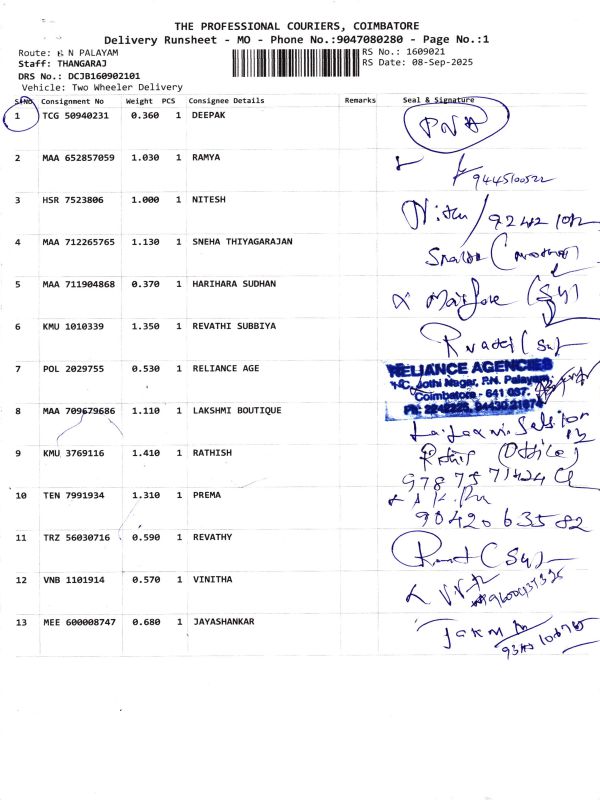 THE PROFESSIONAL COURIERS, COIMBATORE
Delivery Runsheet - MO - Phone No.:9047080280 - Page No.:1
Route: N PALAYAM
RS No.: 1609021
Staff: THANGARAJ
RS Date: 08-Sep-2025
DRS No.: DCJB160902101
Vehicle: Two Wheeler Delivery
SlNo Consignment No Weight PCS Consignee Details Remarks Seal & Signature
1 TCG 50940231 0.360 1 DEEPAK
PNA
2 MAA 652857059 1.030 1 RAMYA
9445100522
3 HSR 7523806 1.000 1 NITESH
4 MAA 712265765 1.130 1 SNEHA THIYAGARAJAN
5 MAA 711904868 0.370 1 HARIHARA SUDHAN
6 KMU 1010339 1.350 1 REVATHI SUBBIYA
7 POL 2029755 0.530 1 RELIANCE AGE
RELIANCE AGENCIES
Jothi Nagar, P.N. Palayam,
Coimbatore - 641 037.
8 MAA 709679686 1.110 1 LAKSHMI BOUTIQUE
9 KMU 3769116 1.410 1 RATHISH
(Office)
10 TEN 7991934 1.310 1 PREMA
9042063582
11 TRZ 56030716 0.590 1 REVATHY
12 VNB 1101914 0.570 1 VINITHA
13 MEE 600008747 0.680 1 JAYASHANKAR